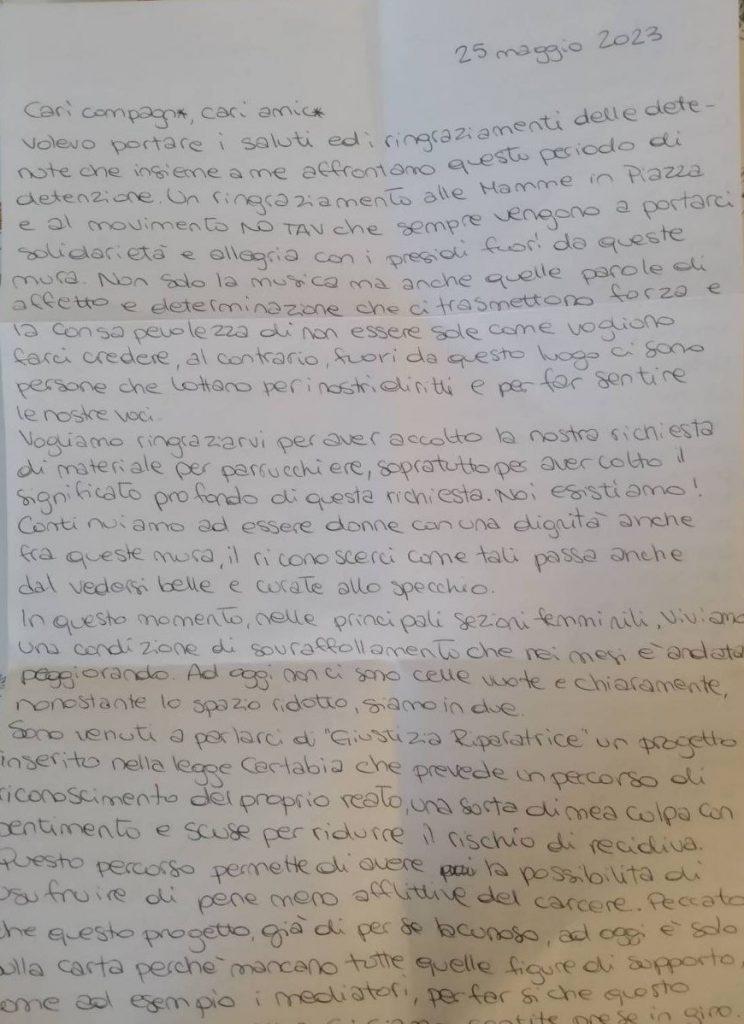 25 maggio 2023
Cari compagn*, cari amic*
volevo portare i saluti ed i ringraziamenti delle dete-
nute che insieme a me affrontano questo periodo di
detenzione. Un ringraziamento alle Mamme in Piazza
e al movimento NO TAV che sempre vengono a portarci
solidarietà e allegria con i presidi fuori da queste
mura. Non solo la musica ma anche quelle parole di
affetto e determinazione che ci trasmettono forza e
la consapevolezza di non essere sole come vogliono
farci credere, al contrario, fuori da questo luogo ci sono
persone che lottano per i nostri diritti e per far sentire
le nostre voci.
Vogliamo ringraziarvi per aver accolto la nostra richiesta
di materiale per parrucchiere, sopratutto per aver colto il
significato profondo di questa richiesta. Noi esistiamo!
Continuiamo ad essere donne con una dignità anche
fra queste mura, il riconoscerci come tali passa anche
dal vedersi belle e curate allo specchio.
In questo momento, nelle principali sezioni femminili, viviamo
una condizione di sovraffollamento che nei mesi è andata
peggiorando. Ad oggi non ci sono celle vuote e chiaramente,
nonostante lo spazio ridotto, siamo in due.
Sono venuti a parlarci di "Giustizia Riparatrice" un progetto
inserito nella legge Cartabia che prevede un percorso di
riconoscimento del proprio reato, una sorta di mea culpa con
pentimento e scuse per ridurre il rischio di recidiva.
Questo percorso permette di avere la possibilità di
usufruire di pene meno afflittive del carcere. Peccato
che questo progetto, già di per se lacunoso, ad oggi è solo
sulla carta perchè mancano tutte quelle figure di supporto,
come ad esempio i mediatori, per far si che questo
sentite prese in giro.